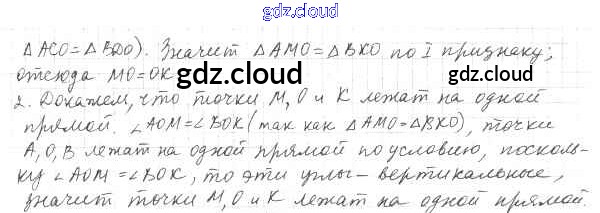 gdz.cloud
△ACO=△BDO). Значит △AMO=△BKO по I признаку;
отсюда MO=OK
gdz.cloud
gdz.cloud
2. Докажем, что точки M, O и K лежат на одной
прямой. ∠AOM=∠BOK (так как △AMO=△BKO), точки
A, O, B лежат на одной прямой по условию, посколь-
ку ∠AOM=∠BOK, то эти углы - вертикальные,
значит точки M, O и K лежат на одной прямой.
gdz.cloud